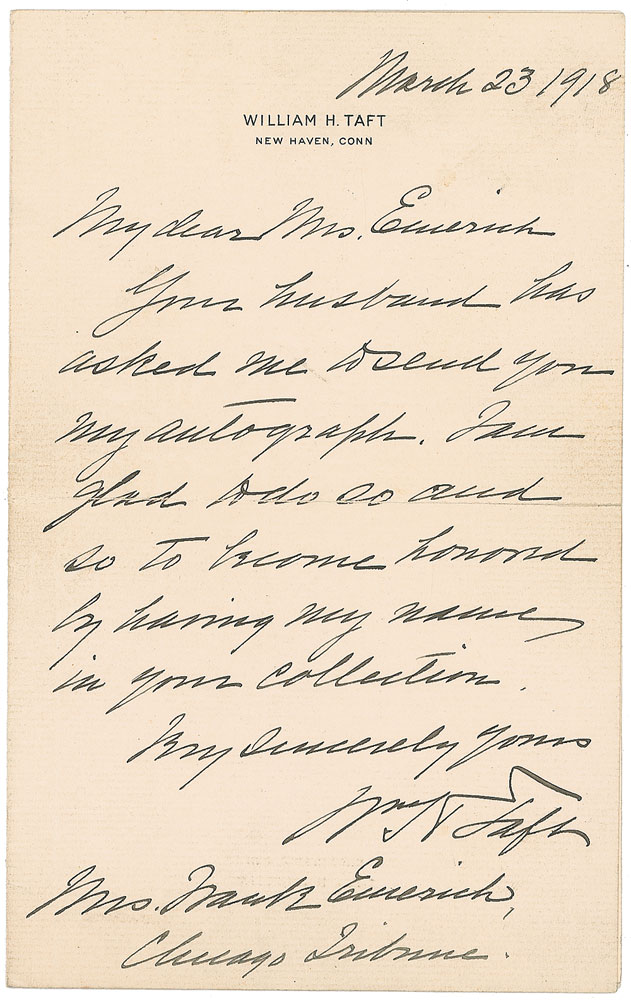 March 23 1918
WILLIAM H. TAFT
NEW HAVEN, CONN
My dear Mrs. Emerich
Your husband has
asked me to send you
my autograph. I am
glad to do so and
so to become honored
by having my name
in your collection.
Very sincerely yours
Wm H Taft
Mrs. Frank Emerich,
Chicago Tribune.